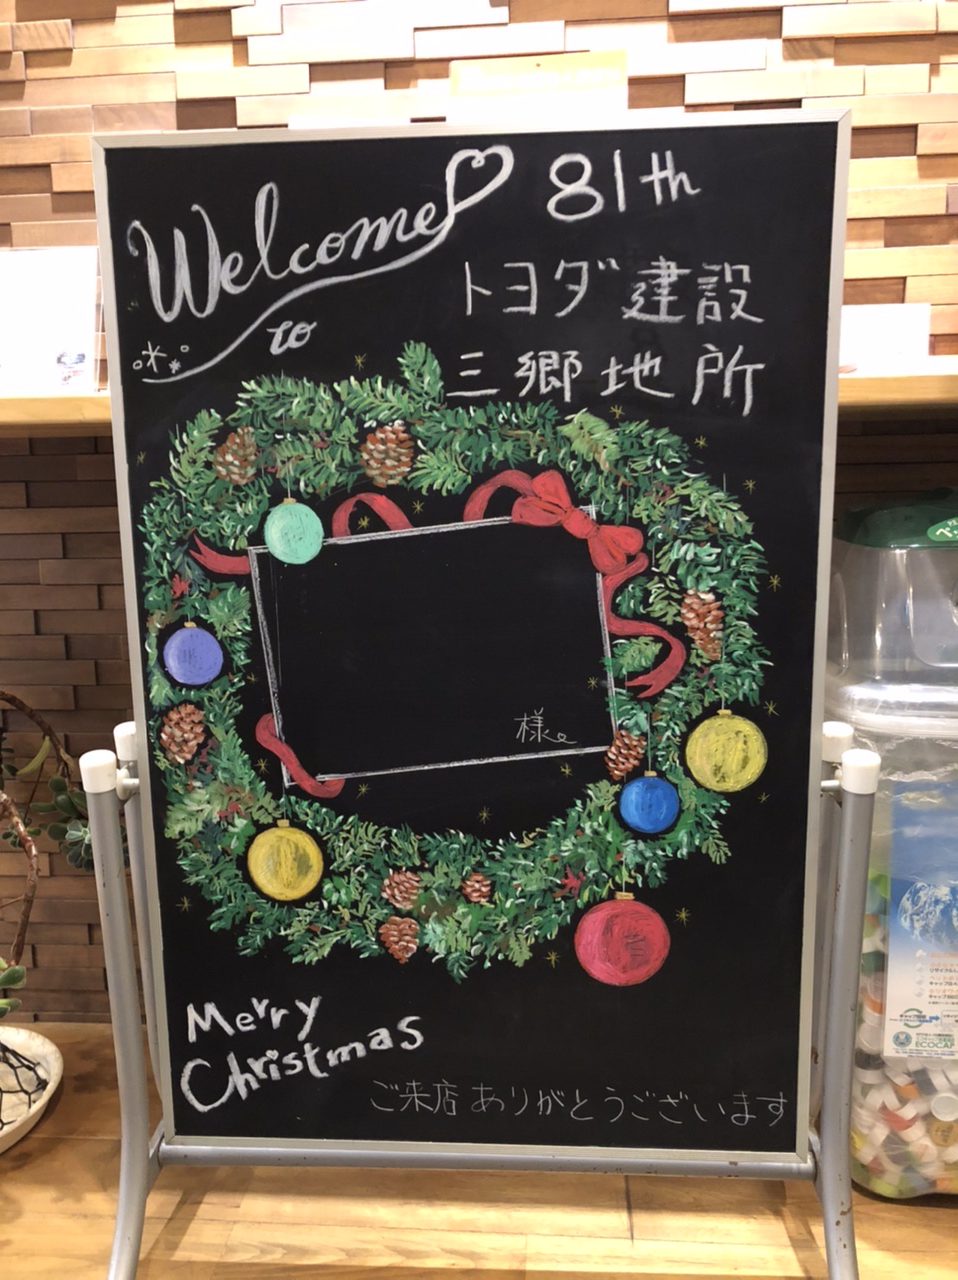 Welcome
to
81th
トヨダ建設
三郷地所
様
Merry
Christmas
ご来店ありがとうございます
ECOCAP